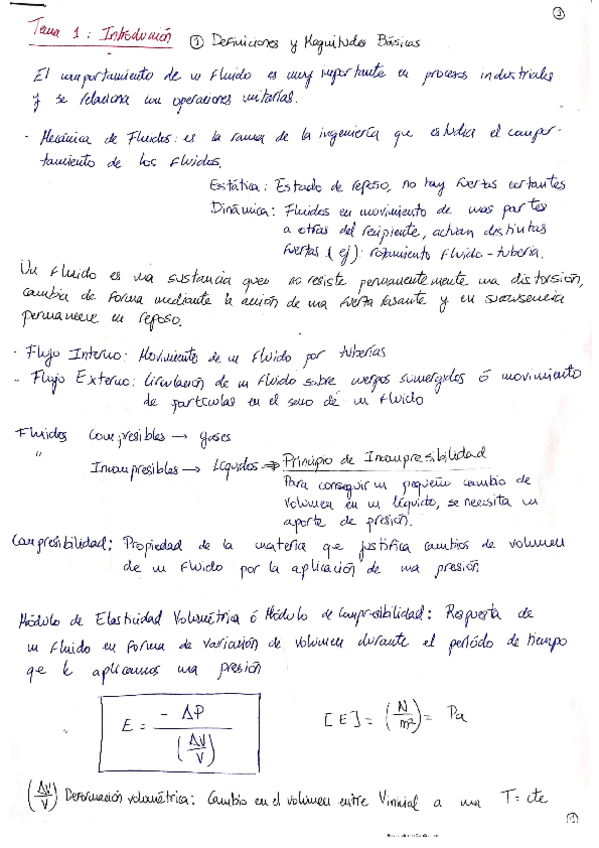 ①
Tema 1: Introducción ① Definiciones y Magnitudes Básicas
El comportamiento de un fluido es muy importante en procesos industriales
y se relaciona con operaciones unitarias.
- Mecánica de Fluidos: es la rama de la ingeniería que estudia el compor-
tamiento de los fluidos.
Estática: Estado de reposo, no hay fuerzas cortantes
Dinámica: Fluidos en movimiento de unas partes
a otras del recipiente, actúan distintas
fuerzas (ej): rozamiento fluido-tubería.
Un fluido es una sustancia que no resiste permanentemente una distorsión,
cambia de forma mediante la acción de una fuerza tasante y en
permanece en reposo.
· Flujo Interno: Movimiento de un fluido por tuberías
- Flujo Externo: Circulación de un fluido sobre cuerpos sumergidos ó movimiento
de partículas en el seno de un fluido
Fluidos Compresibles → gases
" Incompresibles → Líquidos → Principio de Incompresibilidad
Para conseguir un pequeño cambio de
volumen en un líquido, se necesita un
aporte de presión.
Compresibilidad: Propiedad de la materia que justifica cambios de volumen
de un fluido por la aplicación de una presión
Módulo de Elasticidad Volumétrica ó Módulo de compresibilidad: Respuesta de
un fluido en forma de variación de volumen durante el período de tiempo
que le aplicamos una presión
E = -ΔP / (ΔV/V) [E] = (N/m²) = Pa
(ΔV/V) Deformación volumétrica: Cambio en el volumen entre Vinicial a una T = cte
①